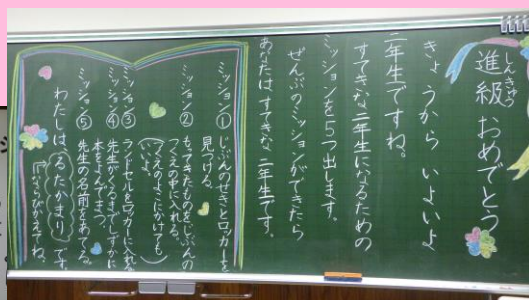 しんきゅう
進級おめでとう
きょうから いよいよ
二年生ですね。
すてきな二年生になるための
ミッションを5つ出します。
ぜんぶのミッションができたら
あなたはすてきな二年生です。
ミッション① じぶんのせきとロッカーを
見つける。
ミッション② もってきたものをじぶんの
つくえの中に入れる。
(つくえのよこにかけても
いいよ。)
ミッション③ ランドセルをロッカーに入れる。
ミッション④ 先生がくるまでしずかに
本をよんでまつ。
ミッション⑤ 先生の名前をあてる。
わたしは、るたかまり です。
ならびかえてね。